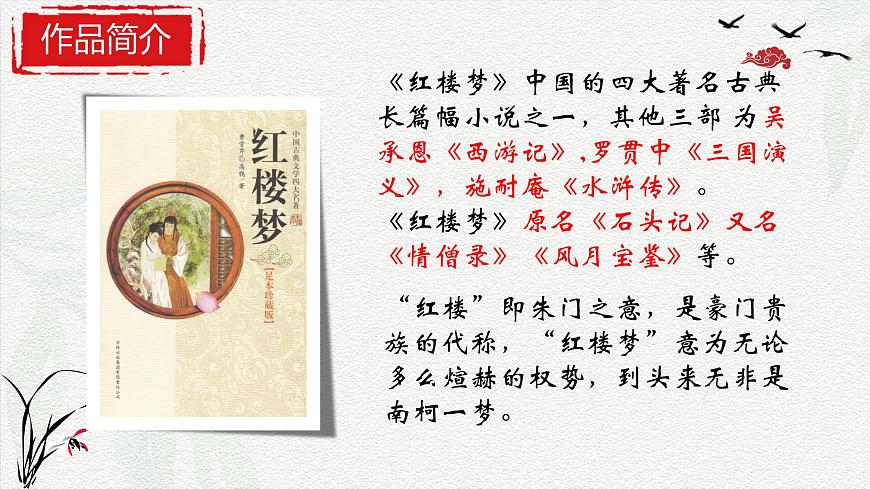 作品简介
《红楼梦》中国的四大著名古典
长篇幅小说之一，其他三部 为吴
承恩《西游记》,罗贯中《三国演
义》，施耐庵《水浒传》。
《红楼梦》原名《石头记》又名
《情僧录》《风月宝鉴》等。
“红楼”即朱门之意，是豪门贵
族的代称，“红楼梦”意为无论
多么煊赫的权势，到头来无非是
南柯一梦。
中国古典文学四大名著
红楼梦
曹雪芹 高鹗/著
【足本珍藏版】
吉林出版集团有限责任公司